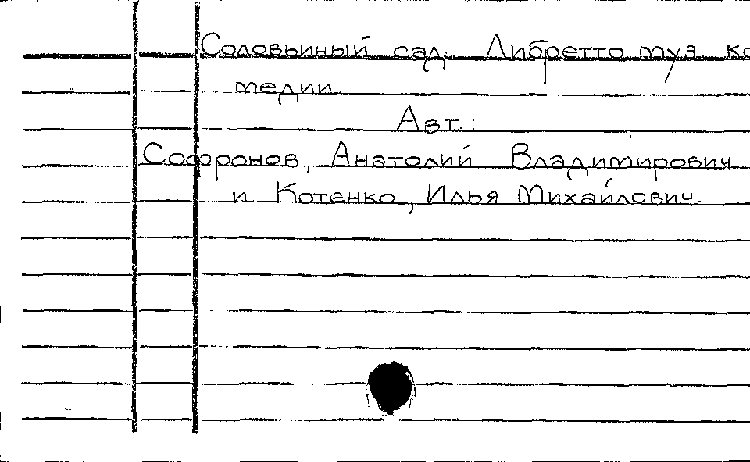 Соловьиный сад. Либретто муз. ко
медии.
Авт.:
Софронов, Анатолий Владимирович
и Котенко, Илья Михайлович.